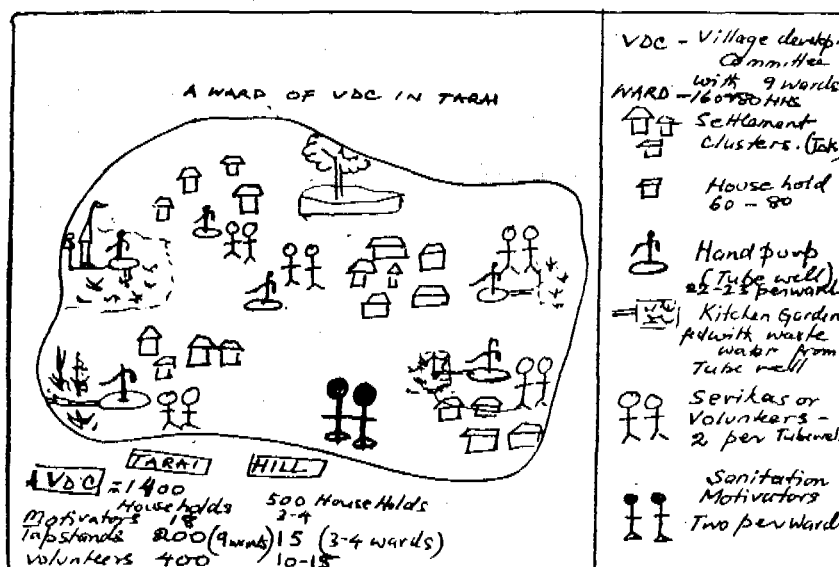 A WARD OF VDC IN TARAI
TARAI HILL
A VDC = 1400
Households 500 HouseHolds
Motivators 18 3-4
Tapstands 200 (9 wards) 15 (3-4 wards)
Volunteers 400 10-15
VDC - Village develop
Committee
with 9 wards
WARD - HHs
Settlement
Clusters.
House hold
60-80
Hand pump
(Tube well)
22-25 per ward
Kitchen Garden
with waste
water from
Tube well
Sevikas or
Volunteers -
2 per Tubewel
Sanitation
Motivators
Two per Ward